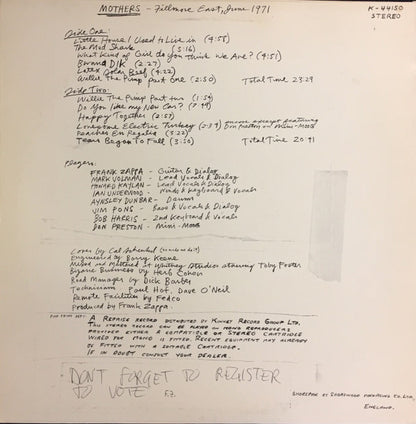 MOTHERS - Fillmore East, June 1971
K-44150
STEREO
Side One:
Little House I Used to Live in (4:58)
The Mud Shark (5:16)
What Kind of Girl do you Think We Are? (4:51)
Bwana Dik (2:27)
Latex Solar Beef (4:22)
Willie The Pump Part One (2:50) Total Time 23:29
Side Two:
Willie The Pimp Part Two (1:54)
Do You Like My New Car? (7:49)
Happy Together (2:57)
Lonesome Electric Turkey (2:39) encore excerpt featuring Don Preston on Mini-Moog
Peaches En Regalia (3:22)
Tears Began To Fall (3:50) Total Time 20:91
Players:
FRANK ZAPPA - Guitar & Dialog
MARK VOLMAN - Lead Vocals & Dialog
HOWARD KAYLAN - Lead Vocals & Dialog
IAN UNDERWOOD - Winds & Keyboard & Vocals
AYNSLEY DUNBAR - Drums
JIM PONS - Bass & Vocals & Dialog
BOB HARRIS - 2nd Keyboard & Vocals
DON PRESTON - Mini-Moog
Cover by Cal Schenkel
Engineered by Barry Keene
Mixed and Mastered at Whitney Studios
Bizarre Business by Herb Cohen
Road Manager by Dick Barber
Technicians Paul Hof, Dave O'Neil
Remote Facilities by Fedco
Produced by Frank Zappa
A REPRISE RECORD DISTRIBUTED BY KINNEY RECORD GROUP LTD.
THIS STEREO RECORD CAN BE PLAYED ON MONO REPRODUCERS
PROVIDED EITHER A COMPATIBLE OR STEREO CARTRIDGE
WIRED FOR MONO IS FITTED. RECENT EQUIPMENT MAY ALREADY
BE FITTED WITH A SUITABLE CARTRIDGE.
IF IN DOUBT CONSULT YOUR DEALER.
DON'T FORGET TO REGISTER
TO VOTE F.Z.
SHOREPAK BY SHOREWOOD PACKAGING CO. LTD.,
ENGLAND.